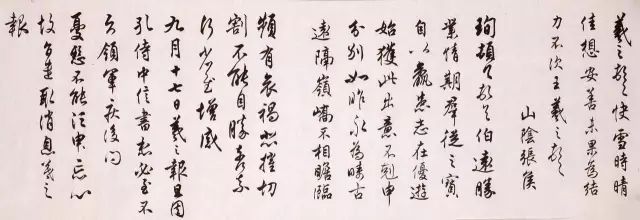 羲之頓首快雪時晴
佳想安善未果為結
力不次王羲之頓首
山陰張侯
珣頓首頓首伯遠勝
業情期群從之寶
自以羸患志在優遊
始獲此出意不剋申
分別如昨永為疇古
遠隔嶺嶠不相瞻臨
頻有哀禍悲摧切
割不能自勝奈何奈何
省慰增感
九月十七日羲之報且因
孔侍中信書想必至不
知領軍疾後問
憂懸不能須臾忘心
故旨遣取消息羲之
報